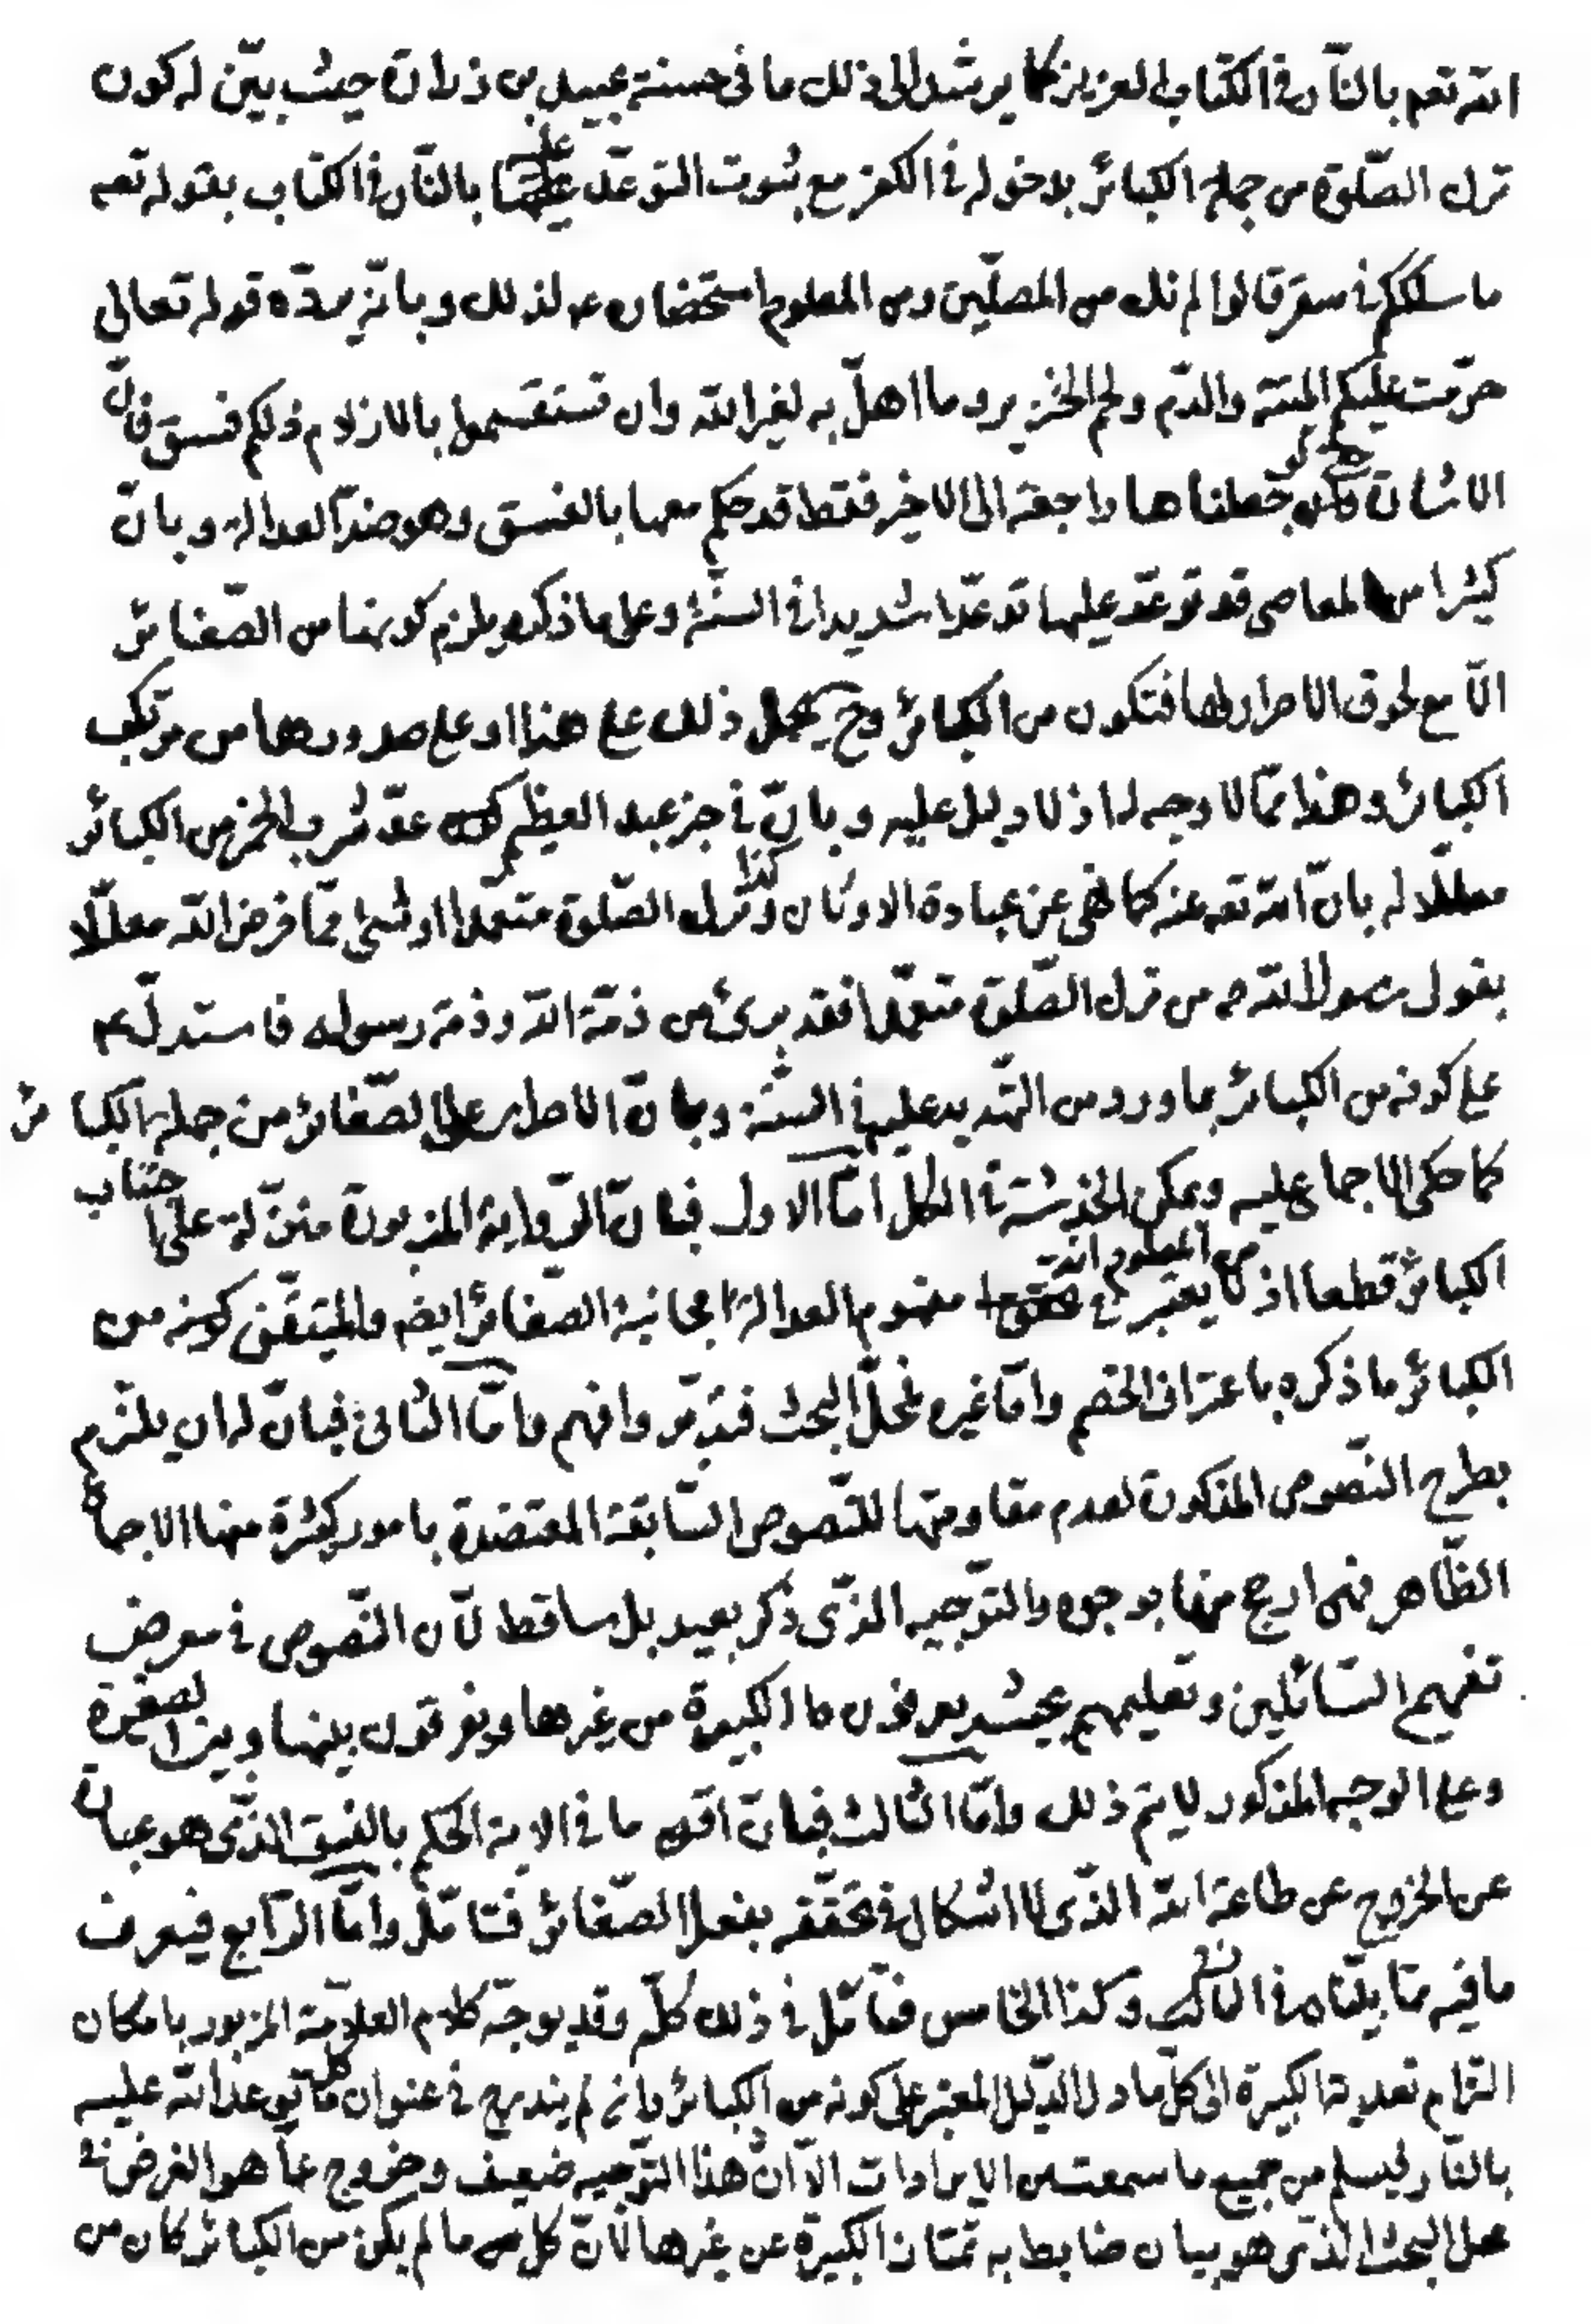 الله تعم بالنّار في الكتاب العزيز كما يرشد الى ذلك ما في حسنة عبيد بن زرارة حيث بيّن له كون
ترك الصّلوة من جملة الكبائر بدخوله في الكفر مع ثبوت التوعّد عليه بالنّار في الكتاب بقوله تعم
ما سلككم في سقر قالوا لم نك من المصلّين ومن المعلوم استحضاره ع لذلك وبانّه يردّه قوله تعالى
حرّمت عليكم الميتة والدّم ولحم الخنزير وما اهلّ به لغير الله وان تستقسموا بالازلام ذلكم فسق فانّ
الاشارة ولو جعلناها راجعة الى الاخير فقط قد حكم معها بالفسق وهو ضدّ العدالة وبانّ
كثيرا من المعاصي قد توعّد عليها توعّدا شديدا في السنّة وعلى ما ذكره يلزم كونها من الصّغائر
الّا مع لحوق الاصرار لها فتكون من الكبائر وح يحمل ذلك على هذا او على صدورها من مرتكب
الكبائر وهذا ممّا لا وجه له اذ لا دليل عليه وبانّ في خبر عبد العظيم عدّ شرب الخمر من الكبائر
معلّلا له بانّ الله تعم نهى عنه كما نهى عن عبادة الاوثان وكذا ترك الصّلوة متعمّدا او شيئا ممّا فرض الله معلّلا
بقول رسول الله ص من ترك الصّلوة متعمّدا فقد برئ من ذمّة الله وذمّة رسوله فاستدلّ ع
على كونه من الكبائر بما ورد من التّهديد عليه في السنّة وبانّ الاصرار على الصّغائر من جملة الكبائر
كما حكي الاجماع عليه ويمكن الخدشة في الكل امّا الاول فبانّ الرّواية المزبورة منزّلة على اجتناب
الكبائر قطعا اذ من المعلوم انّه لا يعتبر في مفهوم العدالة مجانبة الصّغائر ايضا والمتيقّن كونه من
الكبائر ما ذكره باعتراف الخصم وامّا غيره فمحلّ البحث فتدبّر وافهم وامّا الثاني فبانّ له ان يلتزم
بطرح النّصوص المذكورة لعدم مقاومتها للنّصوص السّابقة المعتضدة بامور كثيرة منها الاجماع
الظّاهر فهي ارجح منها بوجوه والتّوجيه الذّي ذكر بعيد بل ساقط لانّ النّصوص في معرض
تفهيم السّائلين وتعليمهم بحيث يعرفون ما الكبيرة من غيرها ويفرقون بينها وبين الصغيرة
وعلى الوجه المذكور لا يتم ذلك وامّا الثالث فبانّ اقصى ما في الاية الحكم بالفسق الذّي هو عبارة
عن الخروج عن طاعة الله الذّي لا اشكال في تحقّقه بفعل الصّغائر فتامّل وامّا الرّابع فيعرف
ما فيه ممّا بيّناه في الثاني وكذا الخامس فتامّل في ذلك كلّه وقد يوجّه كلام العلّامة المزبور بامكان
التزام تعدية الكبيرة الى كلّ ما دل الدّليل المعتبر على كونه من الكبائر وان لم يندرج في عنوان كل ما توعد الله عليه
بالنّار ليسلم من جميع ما سمعت من الايرادات الّا انّ هذا التّوجيه ضعيف وخروج عمّا هو الغرض في
محل البحث الذّي هو بيان ضابط به تمتاز الكبيرة عن غيرها لانّ كل ما لم يكن من الكبائر كان من